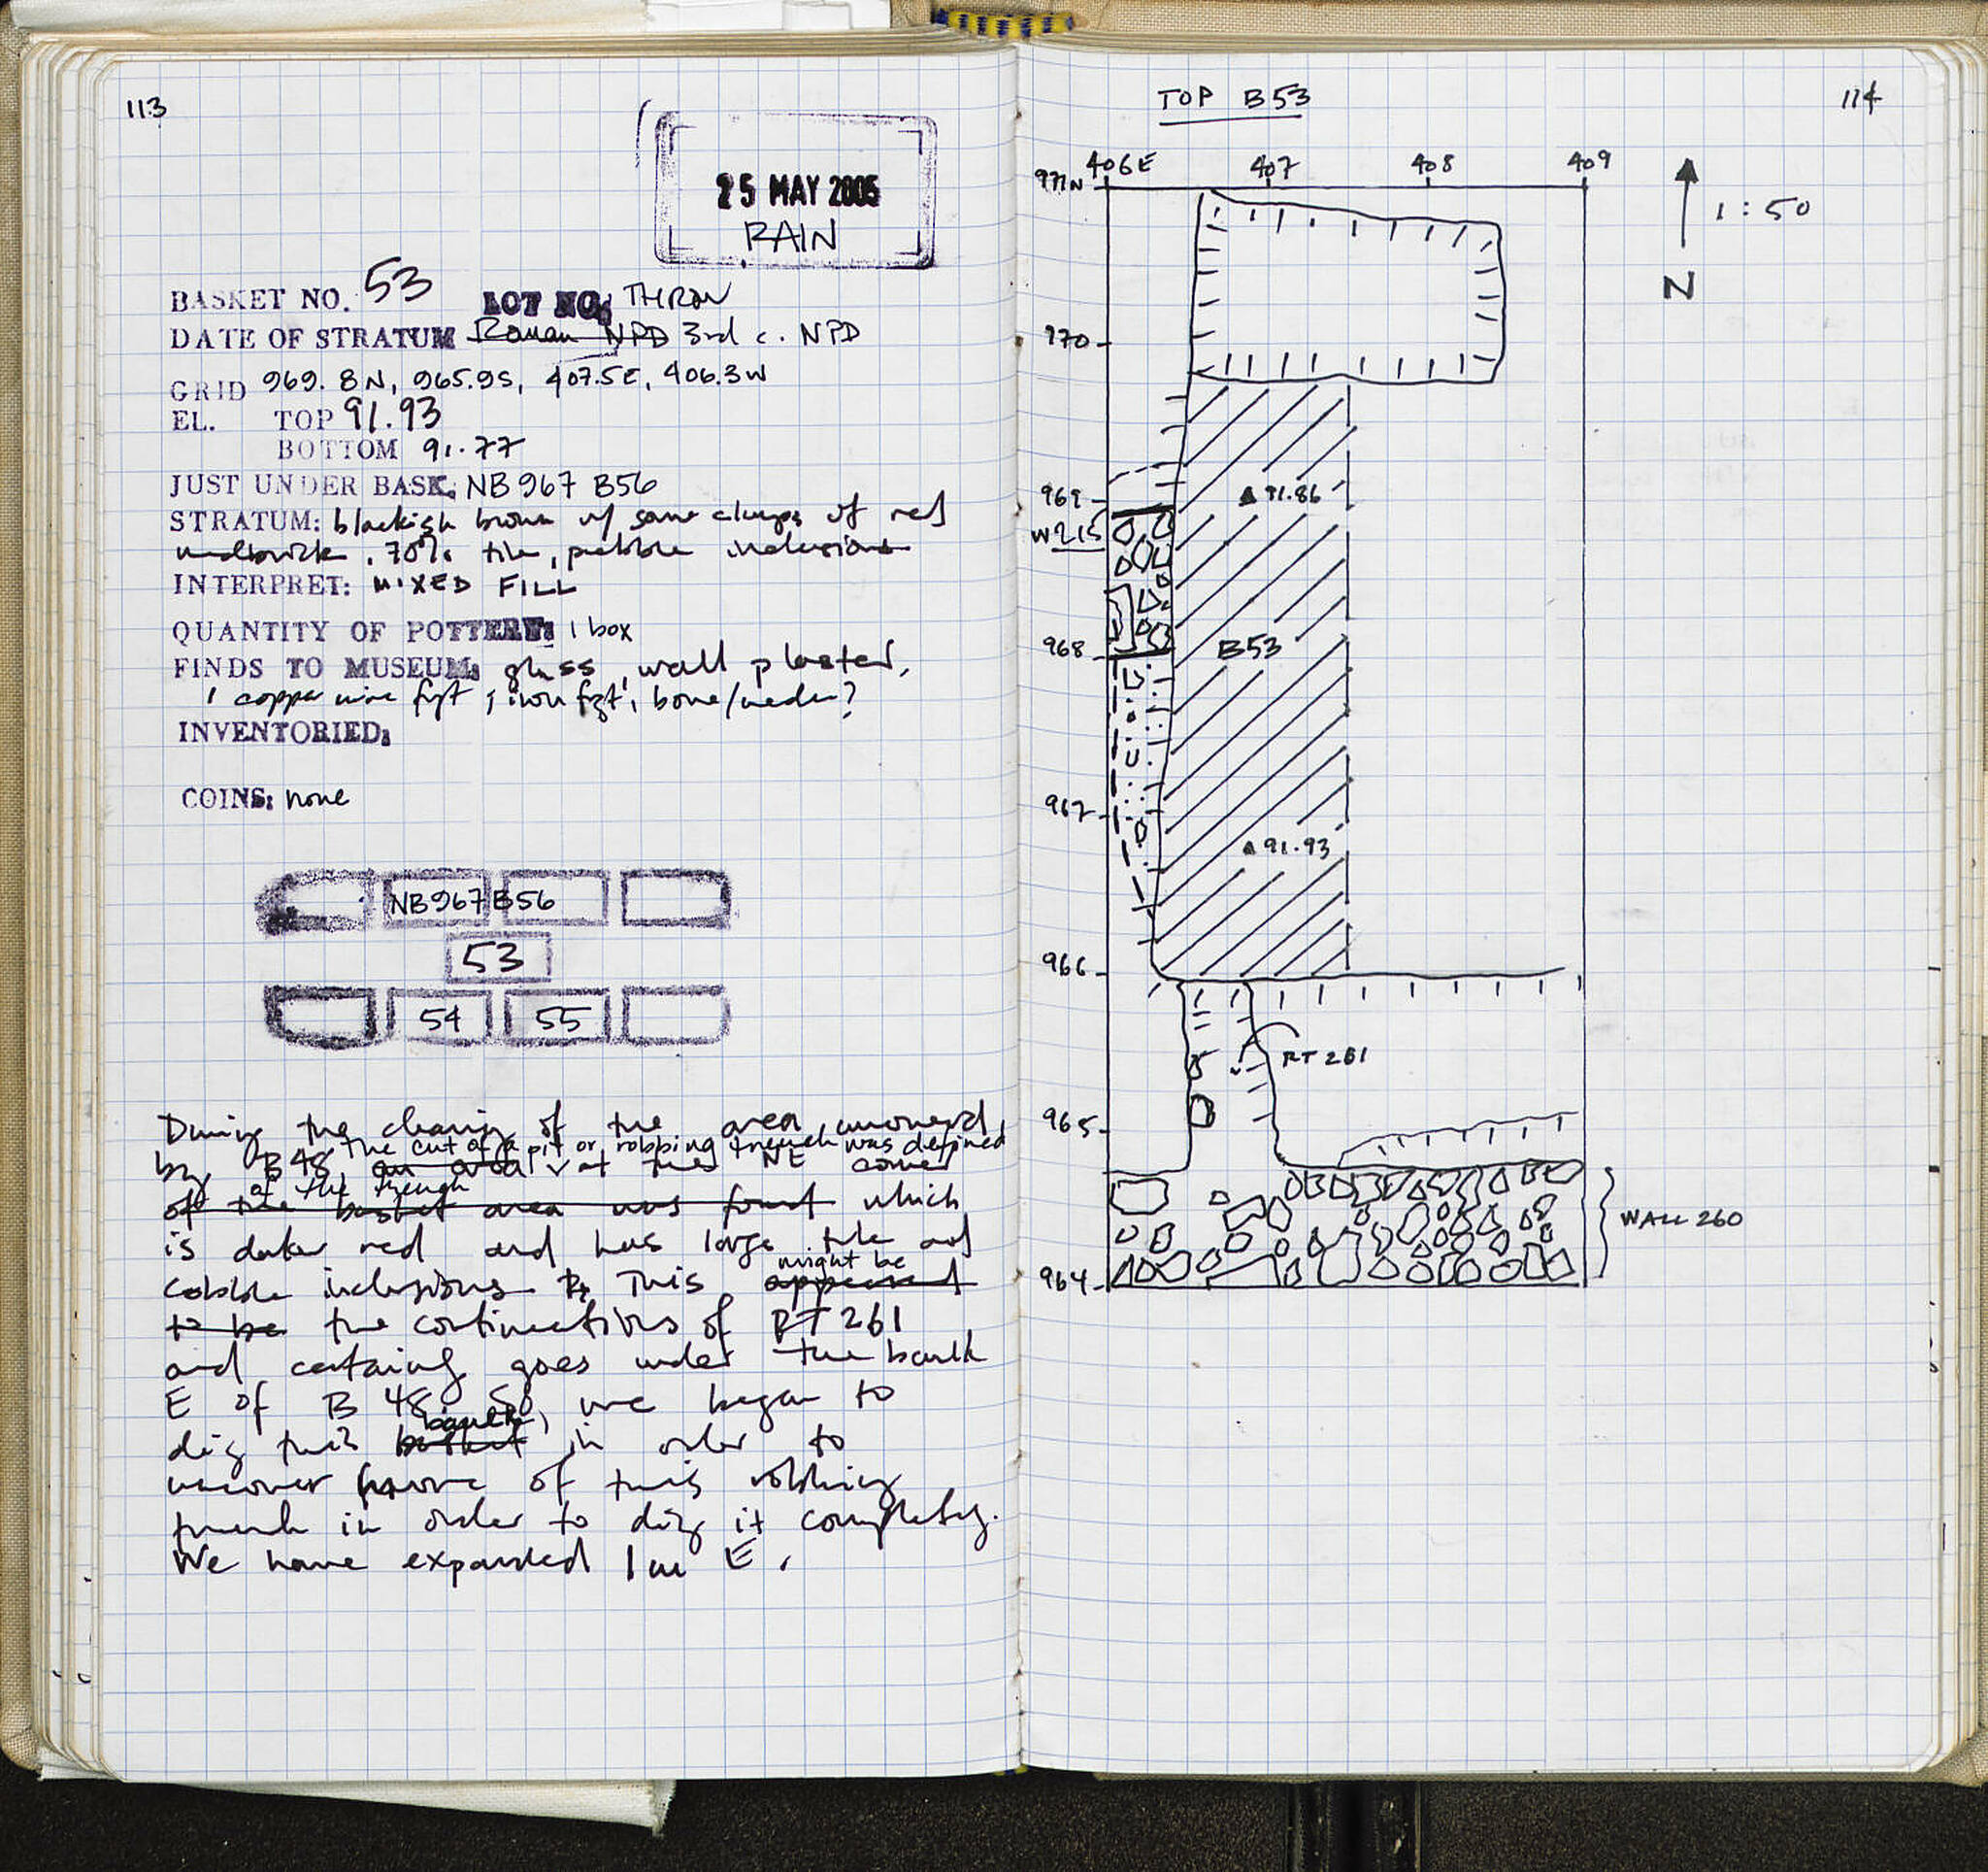 113
25 MAY 2005
RAIN
BASKET NO. 53 LOT NO: THROW
DATE OF STRATUM Roman NPD 3rd c. NPD
GRID 969.8N, 965.9S, 407.5E, 406.3W
EL. TOP 91.93
BOTTOM 91.77
JUST UNDER BASK: NB967 B56
STRATUM: blackish brown w/ some clumps of red
mudbrick. 70% tile, pebble inclusions
INTERPRET: MIXED FILL
QUANTITY OF POTTERY: 1 box
FINDS TO MUSEUM: glass, wall plaster,
1 copper wire fgt, iron fgt, bone/needle?
INVENTORIED:
COINS: none
NB967 B56
53
54 55
During the cleaning of the area uncovered
the cut of a pit or robbing trench was defined
by B48, an area at the NE corner
of the trench
of the basket area was found which
is darker red and has large tile and
might be
cobble inclusions. This appeared
to be the continuations of RT 261
and certainly goes under the baulk
E of B 48, 50, we began to
baulk,
dig this basket in order to
uncover more of this robbing
trench in order to dig it completely.
We have expanded 1m E.
TOP B53
114
406E 407 408 409
971N
1:50
N
970
969
91.86
W215
968
B53
967
91.93
966
RT 261
965
WALL 260
964